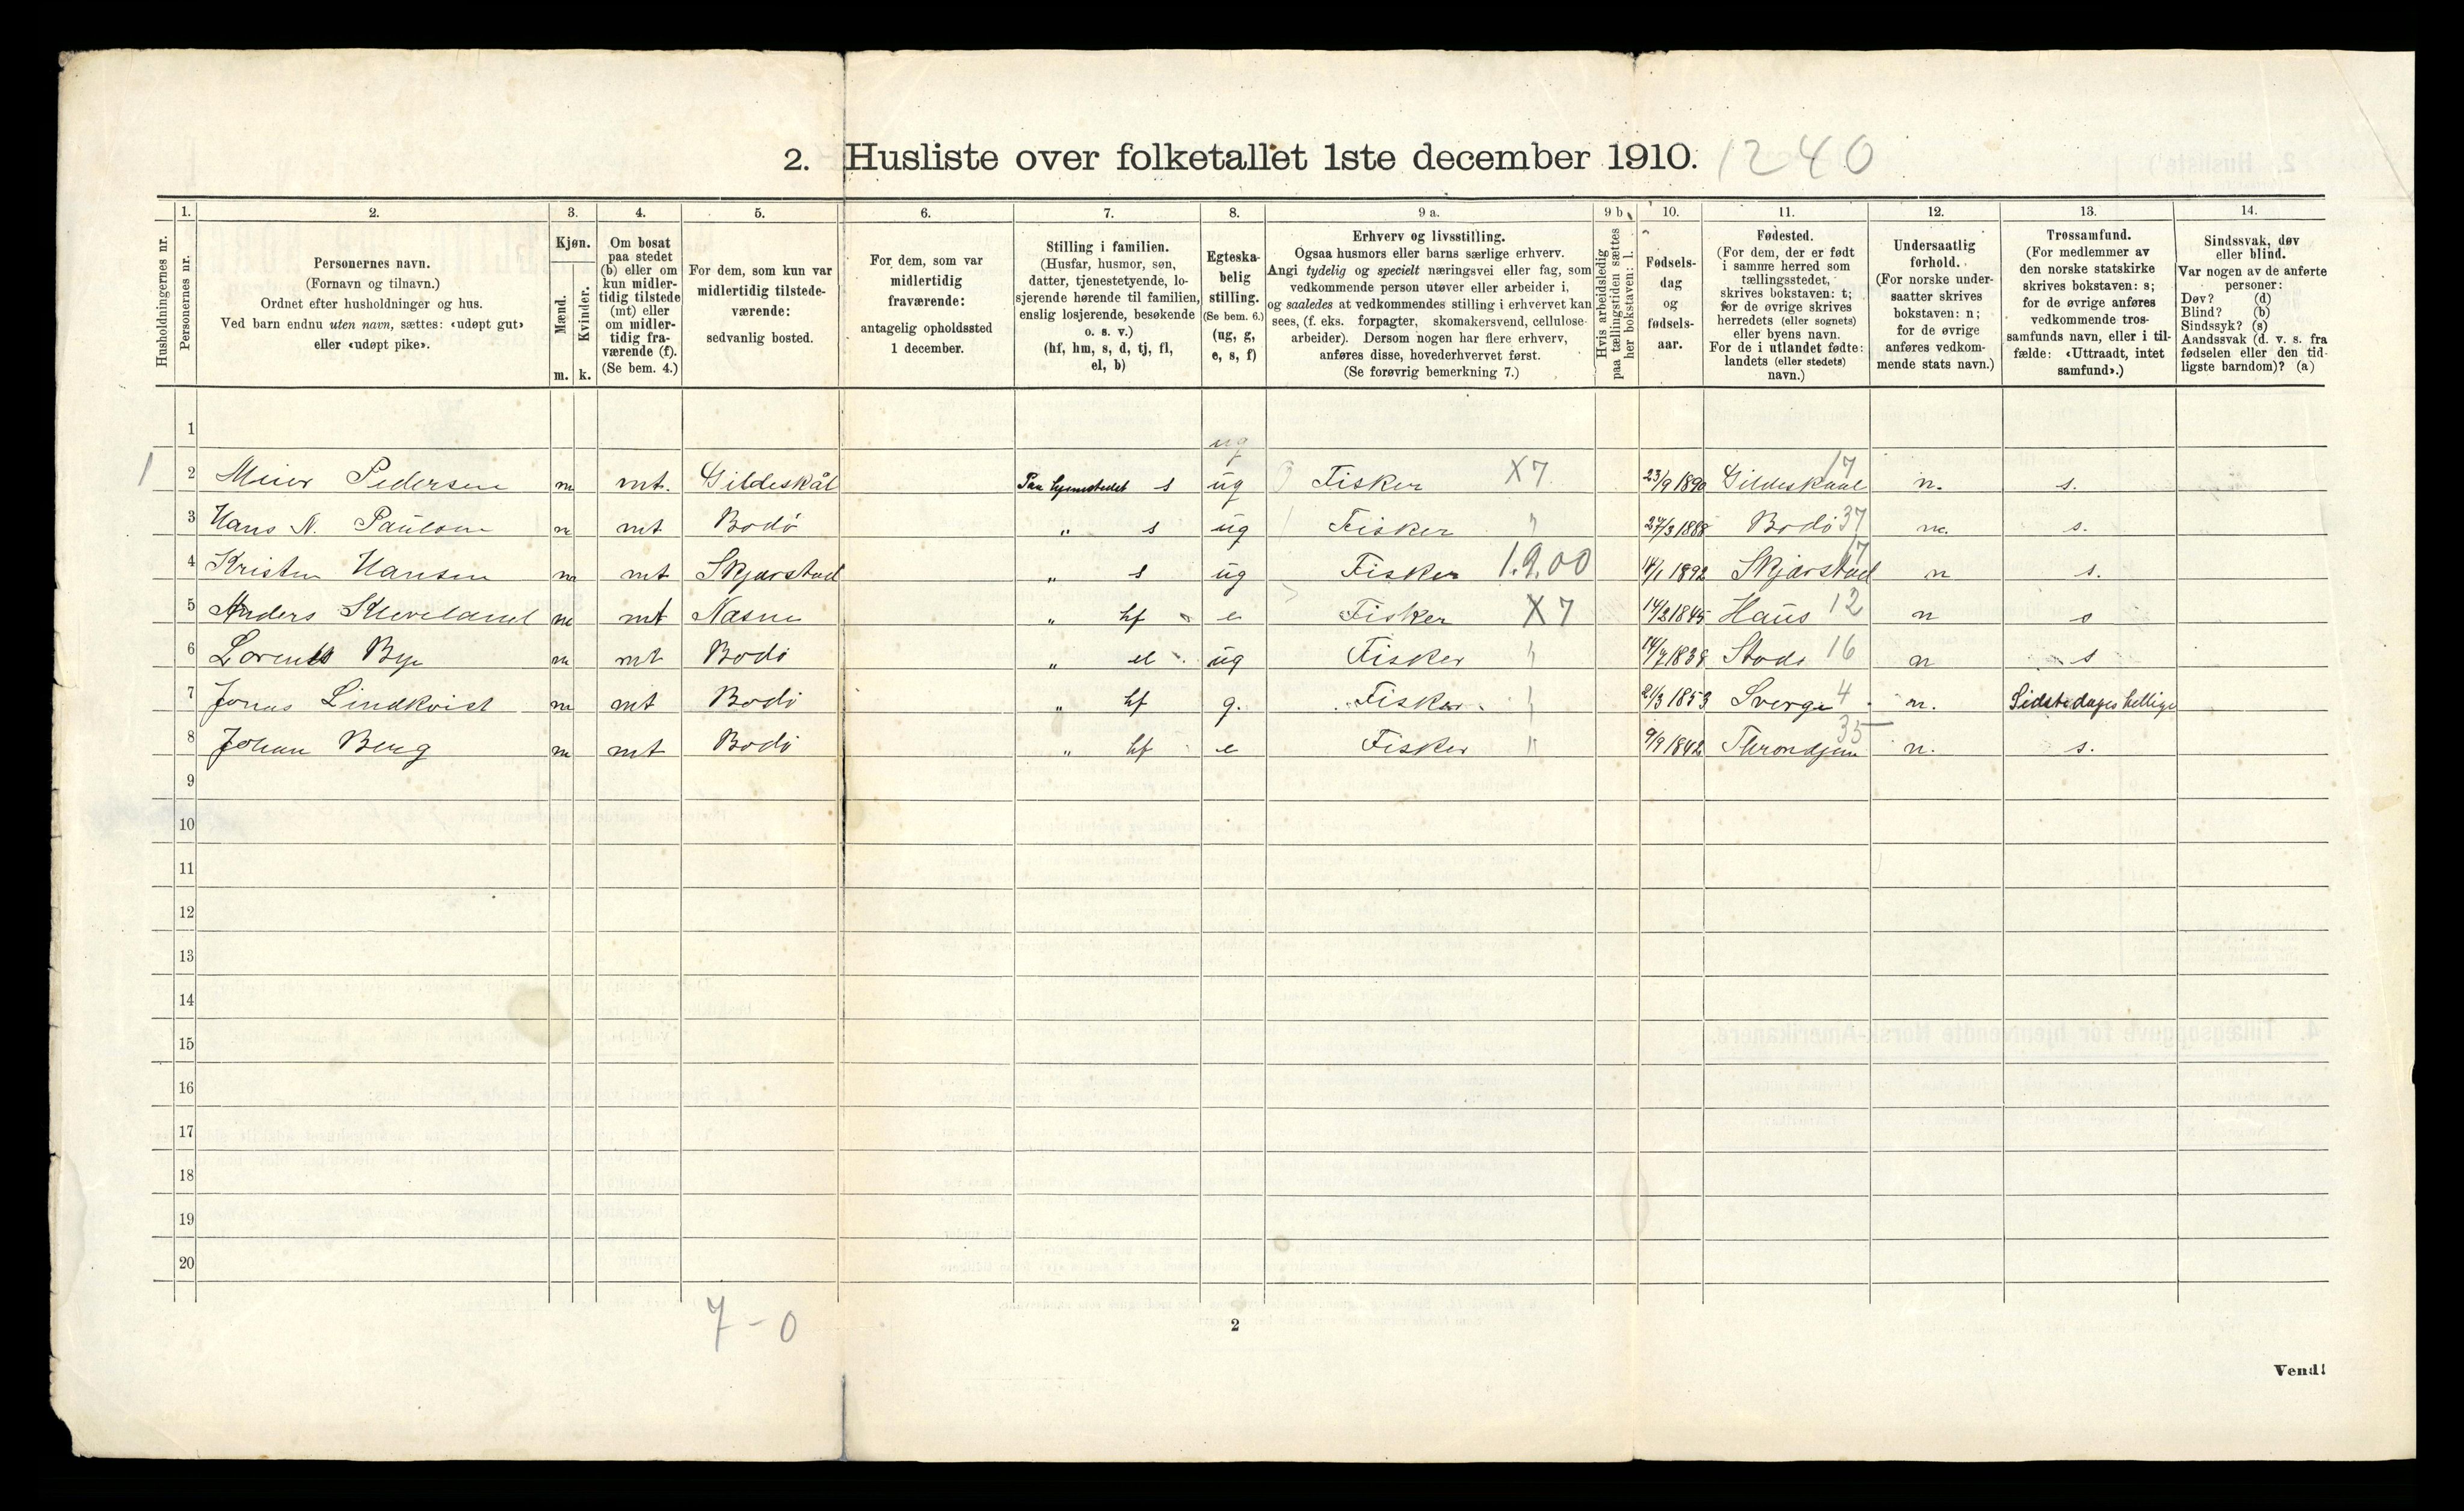 2. Husliste over folketallet 1ste december 1910. 1240
Husholdningernes nr.
1.
Personernes nr.
2.
Personernes navn.
(Fornavn og tilnavn.)
Ordnet efter husholdninger og hus.
Ved barn endnu uten navn, sættes: «udøpt gut»
eller «udøpt pike».
3.
Kjøn.
Mænd.
Kvinder.
m. k.
4.
Om bosat
paa stedet
(b) eller om
kun midler-
tidig tilstede
(mt) eller
om midler-
tidig fra-
værende (f).
(Se bem. 4.)
5.
For dem, som kun var
midlertidig tilstede-
værende:
sedvanlig bosted.
6.
For dem, som var
midlertidig
fraværende:
antagelig opholdssted
1 december.
7.
Stilling i familien.
(Husfar, husmor, søn,
datter, tjenestetyende, lo-
sjerende hørende til familien,
enslig losjerende, besøkende
o. s. v.)
(hf, hm, s, d, tj, fl,
el, b)
8.
Egteska-
belig
stilling.
(Se bem. 6.)
(ug, g,
e, s, f)
9 a.
Erhverv og livsstilling.
Ogsaa husmors eller barns særlige erhverv.
Angi tydelig og specielt næringsvei eller fag, som
vedkommende person utøver eller arbeider i,
og saaledes at vedkommendes stilling i erhvervet kan
sees, (f. eks. forpagter, skomakersvend, cellulose-
arbeider). Dersom nogen har flere erhverv,
anføres disse, hovederhvervet først.
(Se forøvrig bemerkning 7.)
9 b.
Hvis arbeidsledig
paa tællingstiden sættes
her bokstaven: l.
10.
Fødsels-
dag
og
fødsels-
aar.
11.
Fødested.
(For dem, der er født
i samme herred som
tællingsstedet,
skrives bokstaven: t;
for de øvrige skrives
herredets (eller sognets)
eller byens navn.
For de i utlandet fødte:
landets (eller stedets)
navn.)
12.
Undersaatlig
forhold.
(For norske under-
saatter skrives
bokstaven: n;
for de øvrige
anføres vedkom-
mende stats navn.)
13.
Trossamfund.
(For medlemmer av
den norske statskirke
skrives bokstaven: s;
for de øvrige anføres
vedkommende tros-
samfunds navn, eller i til-
fælde: «Uttraadt, intet
samfund».)
14.
Sindssvak, døv
eller blind.
Var nogen av de anførte
personer:
Døv? (d)
Blind? (b)
Sindssyk? (s)
Aandssvak (d. v. s. fra
fødselen eller den tid-
ligste barndom)? (a)
1 ug
1 2 Meier Pedersen m mt. Gildeskål Paa hjemstedet s ug Fisker X7 23/9 1890 Gildeskaal 17 n. s.
3 Hans N. Paulsen m mt Bodö " s ug Fisker " 27/3 1888 Bodö 37 n. s.
4 Kristen Hansen m mt Skjærstad " s ug Fisker 1.9.00 14/1 1892 Skjærstad 17 n s.
5 Anders Kleveland m mt Næsne " hf e Fisker X7 14/2 1845 Haus 12 n s
6 Lorents Bye m mt Bodö " el ug Fisker " 14/7 1838 Stods 16 n s
7 Jonas Lindkvist m mt Bodö " hf g. Fisker " 21/3 1853 Sverge 4 n. Sidste dages hellige
8 Johan Berg m mt Bodö " hf e Fisker " 9/9 1842 Throndjem 35 n. s.
9
10
11
12
13
14
15
16
17
18
19
20
7 - 0
2
Vend!